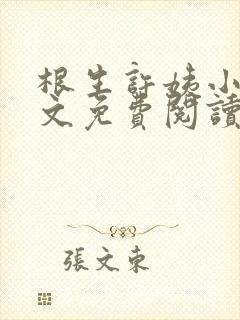 根生許姨小
文免費閱讀
張文東